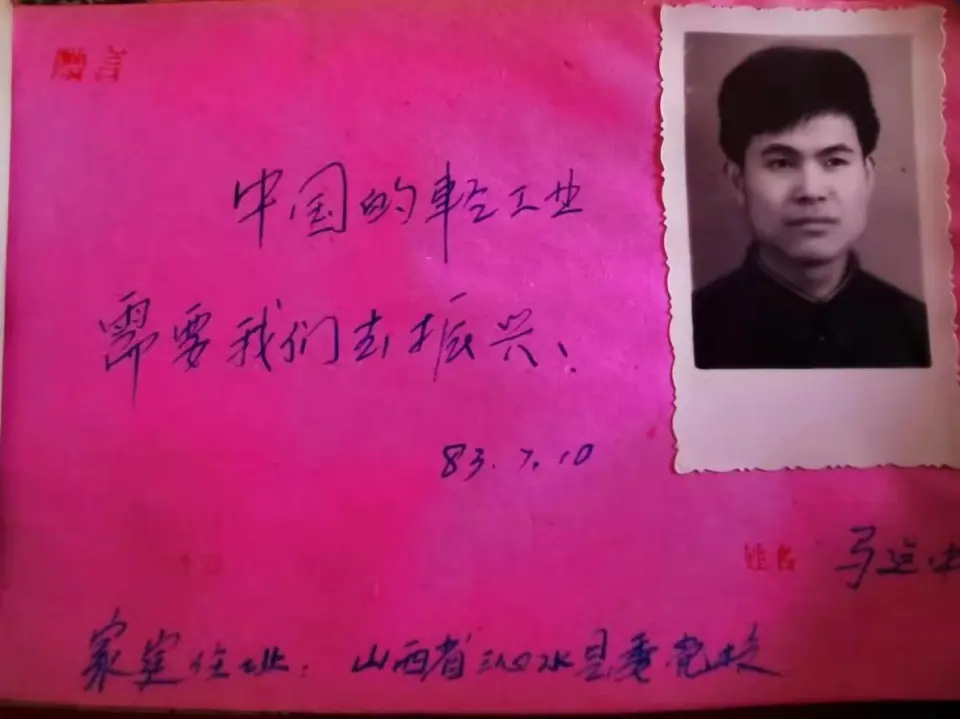 赠言
中国的轻工业
需要我们去振兴、
83.7.10
姓名 马运中
家庭住址：山西省沁水县委党校